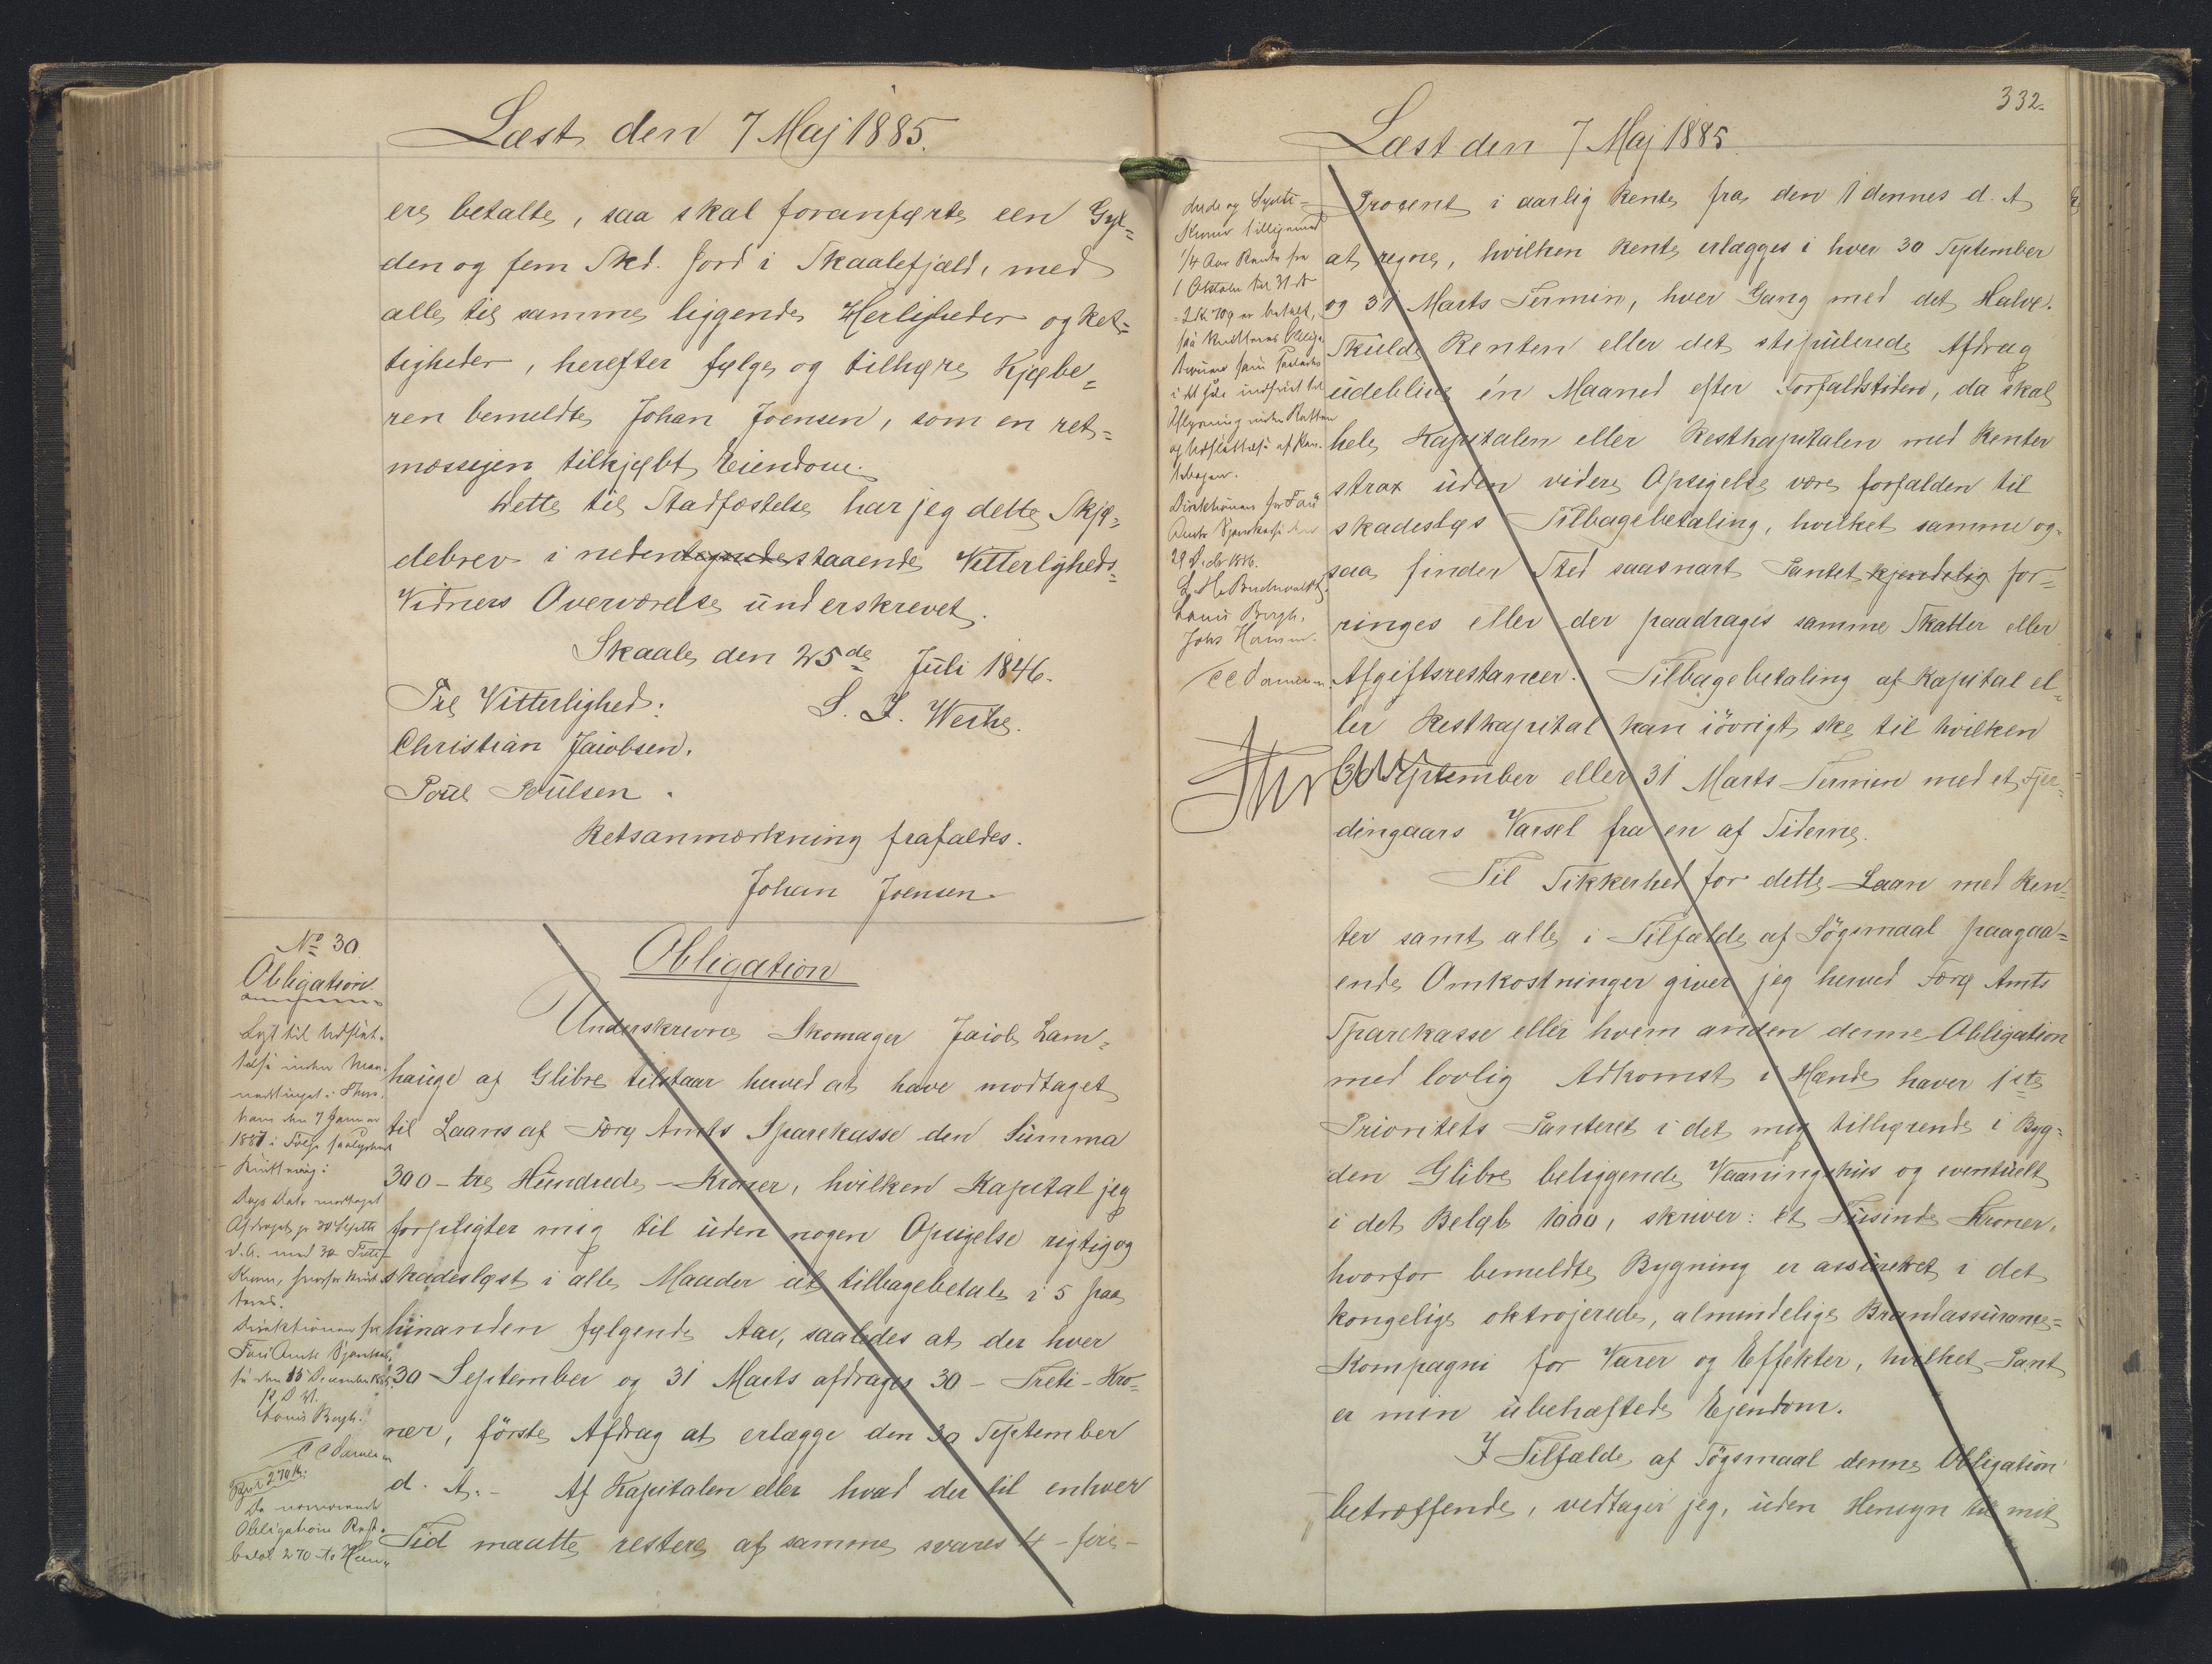 Læst den 7 Maj 1885.
ere betalte, saa skal foranførte een Gyl=
den og fem Skd. Jord i Skaalefjæld, med
alle til samme liggende Herligheder og Ret=
tigheder, herefter følge og tilhøre Kjøbe=
ren bemeldte Johan Joensen, som en ret=
mæssigen tilkjøbt Eiendom.
Dette til Stadfæstelse har jeg dette Skjø=
debrev i nedentegnedestaaende Vitterligheds=
Vidners Overværelse underskrevet.
Skaale den 25de Juli 1846.
Til Vitterlighed:
Christian Jacobsen.
Poul Poulsen.
Retsanmærkning frafaldes.
Johan Joensen.
No 30.
Obligation
Lyst til Udslet=
telse inden Man=
nedstinget i Thors=
havn den 7 Januar
1887 i Følge saalydende
Kvittering:
Dags Dato modtaget
Afdraget pr 30 Septbr
d.A. med 30 Treti
Kroner, hvorfor kvit=
teres.
Direktionen for
Færø Amts Sparekas=
se den 15 December 1885.
Louis Bergh.
Obligation
Underskrevne Skomager Jacob Lam=
hauge af Glibre tilstaar herved at have modtaget
til Laans af Færø Amts Sparekasse den Summa
300 - tre Hundrede - Kroner, hvilken Kapital jeg
forpligter mig til uden nogen Opsigelse rigtig og
skadesløst i alle Maader at tilbagebetale i 5 paa
hinanden følgende Aar, saaledes at der hver
30 September og 31 Marts afdrages 30 - Treti - Kro=
ner, første Afdrag at erlægge den 30 September
d. A. - Af Kapitalen eller hvad der til enhver
Tid maatte restere af samme svares 4 - fire -
Obligation Rest=
beløb 270 to Hun=
332.
Læst den 7 Maj 1885
drede og Sytti=
Kroner tilligemed
1/4 Aar Rente fra
1 Oktober til 31 dr
= 2 Kr 70 ø er betalt,
og Udslettelse af Pan=
tebogen.
Direktionen for Færø
Amts Sparekasse den
29 Decbr 1886.
Louis Bergh.
Johs Hamm.
Procent i aarlig Rente fra den 1 dennes d. A
at regne, hvilken Rente erlægges i hver 30 September
og 31 Marts Termin, hver Gang med det Halve.
Skulde Renten eller det stipulerede Afdrag
udeblive én Maaned efter Forfaldstiden, da skal
hele Kapitalen eller Restkapitalen med Renter
strax uden videre Opsigelse være forfalden til
skadesløs Tilbagebetaling, hvilket samme og=
saa finder Sted saasnart Pantet kjendelig for=
ringes eller der paadrages samme Skatter eller
Afgiftsrestancer. Tilbagebetaling af Kapital el=
ler Restkapital kan iövrigt ske til hvilken
30 September eller 31 Marts Termin med et Fjer=
dingaars Varsel fra en af Siderne.
Til Sikkerhed for dette Laan med Ren=
ter samt alle i Tilfælde af Sögsmaal paagaa=
ende Omkostninger giver jeg herved Færø Amts
Sparekasse eller hvem anden denne Obligation
med lovlig Adkomst i Hænde haver 1ste
Prioritets Panteret i det mig tilhørende i Byg=
den Glibre beliggende Vaaningshus og eventuelt
i det Beløb 1000, skriver: et Tusinde Kroner,
hvorfor bemeldte Bygning er assureret i det
kongelige oktrojerede, almindelige Brandassurance=
Kompagni for Varer og Effekter, hvilket Pant
er min ubehæftede Ejendom.
I Tilfælde af Sögsmaal denne Obligation
betræffende, vedtager jeg, uden Hensyn til mit